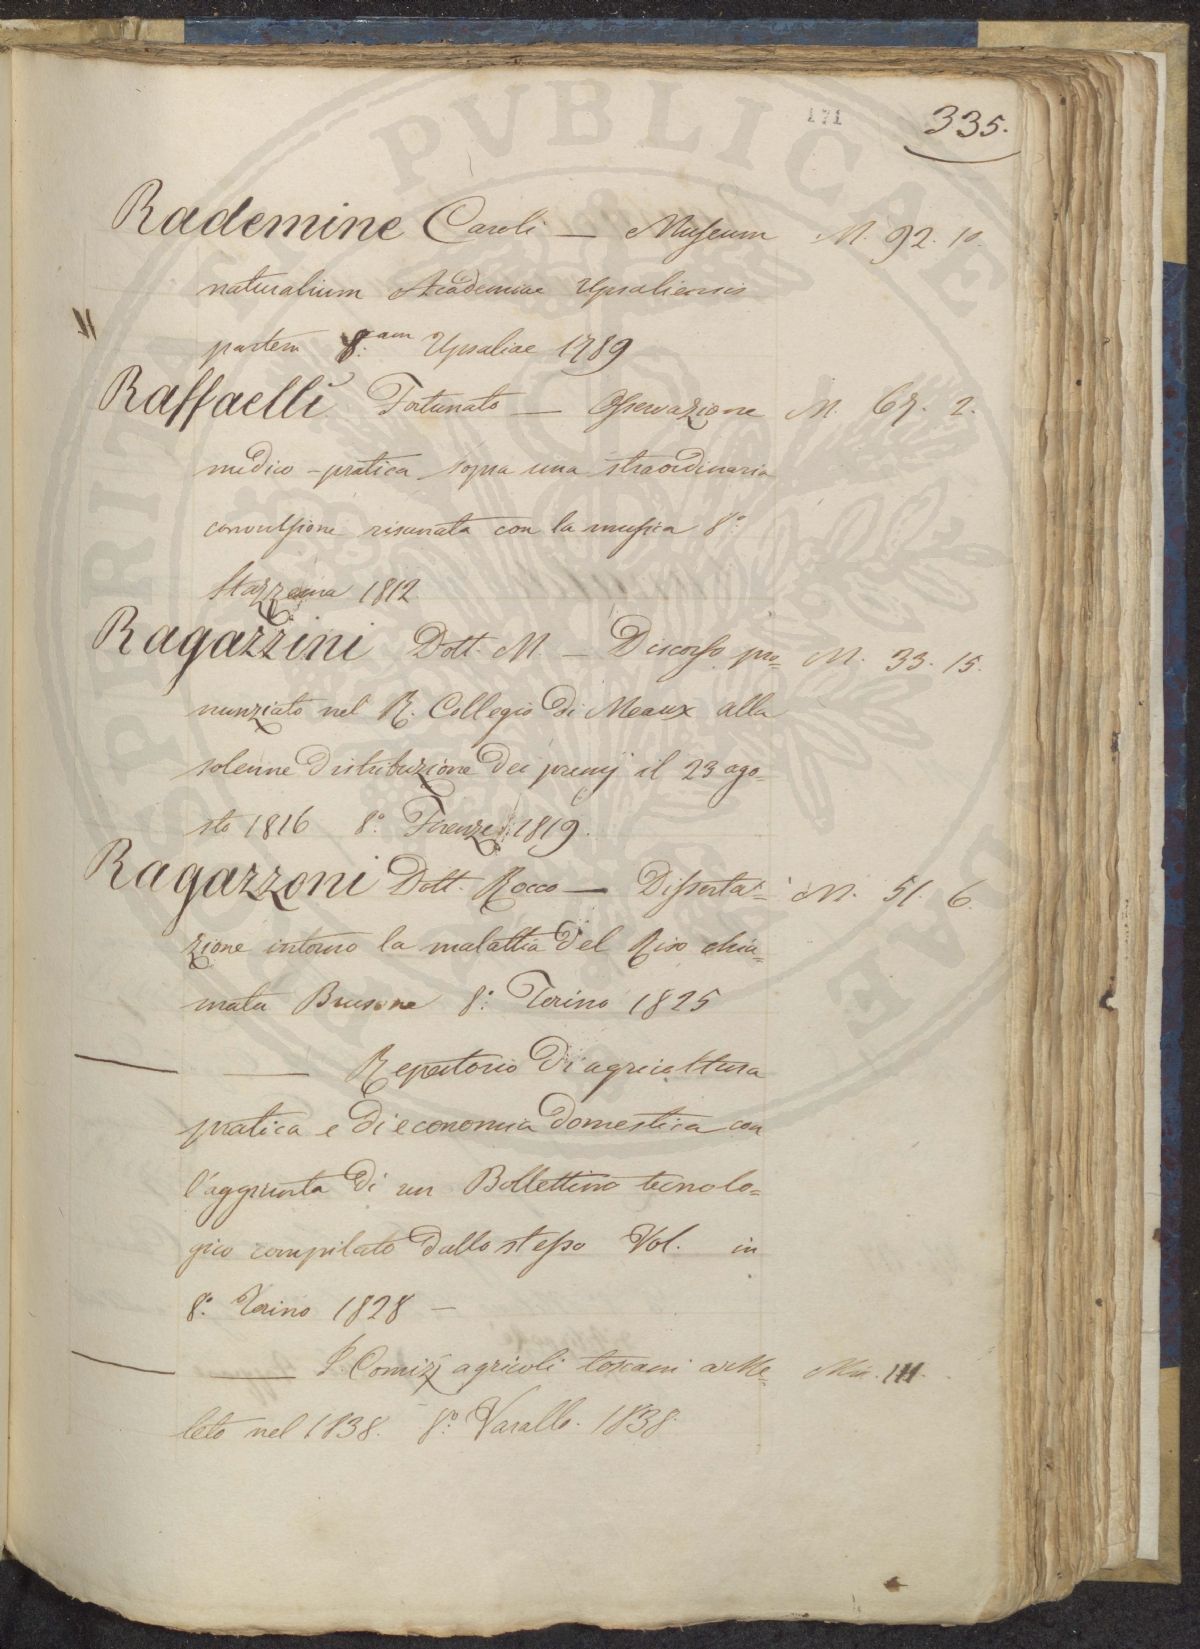 171
335.
Rademine Caroli — Museum M. 92. 10.
naturalium Academiae Upsaliensis
partem 8.am Upsaliae 1789
Raffaelli Fortunato — Osservazione M. 67. 2.
medico-pratica sopra una straordinaria
convulsione risanata con la musica 8.°
Stazzema 1812
Ragazzini Dott. M. — Discorso pro= M. 33. 15.
nunziato nel R. Collegio di Meaux alla
solenne distribuzione dei premj il 23 ago=
sto 1816 8.° Firenze 1819.
Ragazzoni Dott. Rocco — Disserta= M. 51. 6.
zione intorno la malattia del Riso chia=
mata Brusone 8.° Torino 1825
— — Repertorio di agricoltura
pratica e di economia domestica con
l'aggiunta di un Bollettino tecnolo=
gico compilato dallo stesso Vol. in
8.° Torino 1828 —
— — I Comizj agricoli toscani a Me= Mis. III.
leto nel 1838. 8.° Varallo. 1838.
PVBLICAE
SPIRITVI